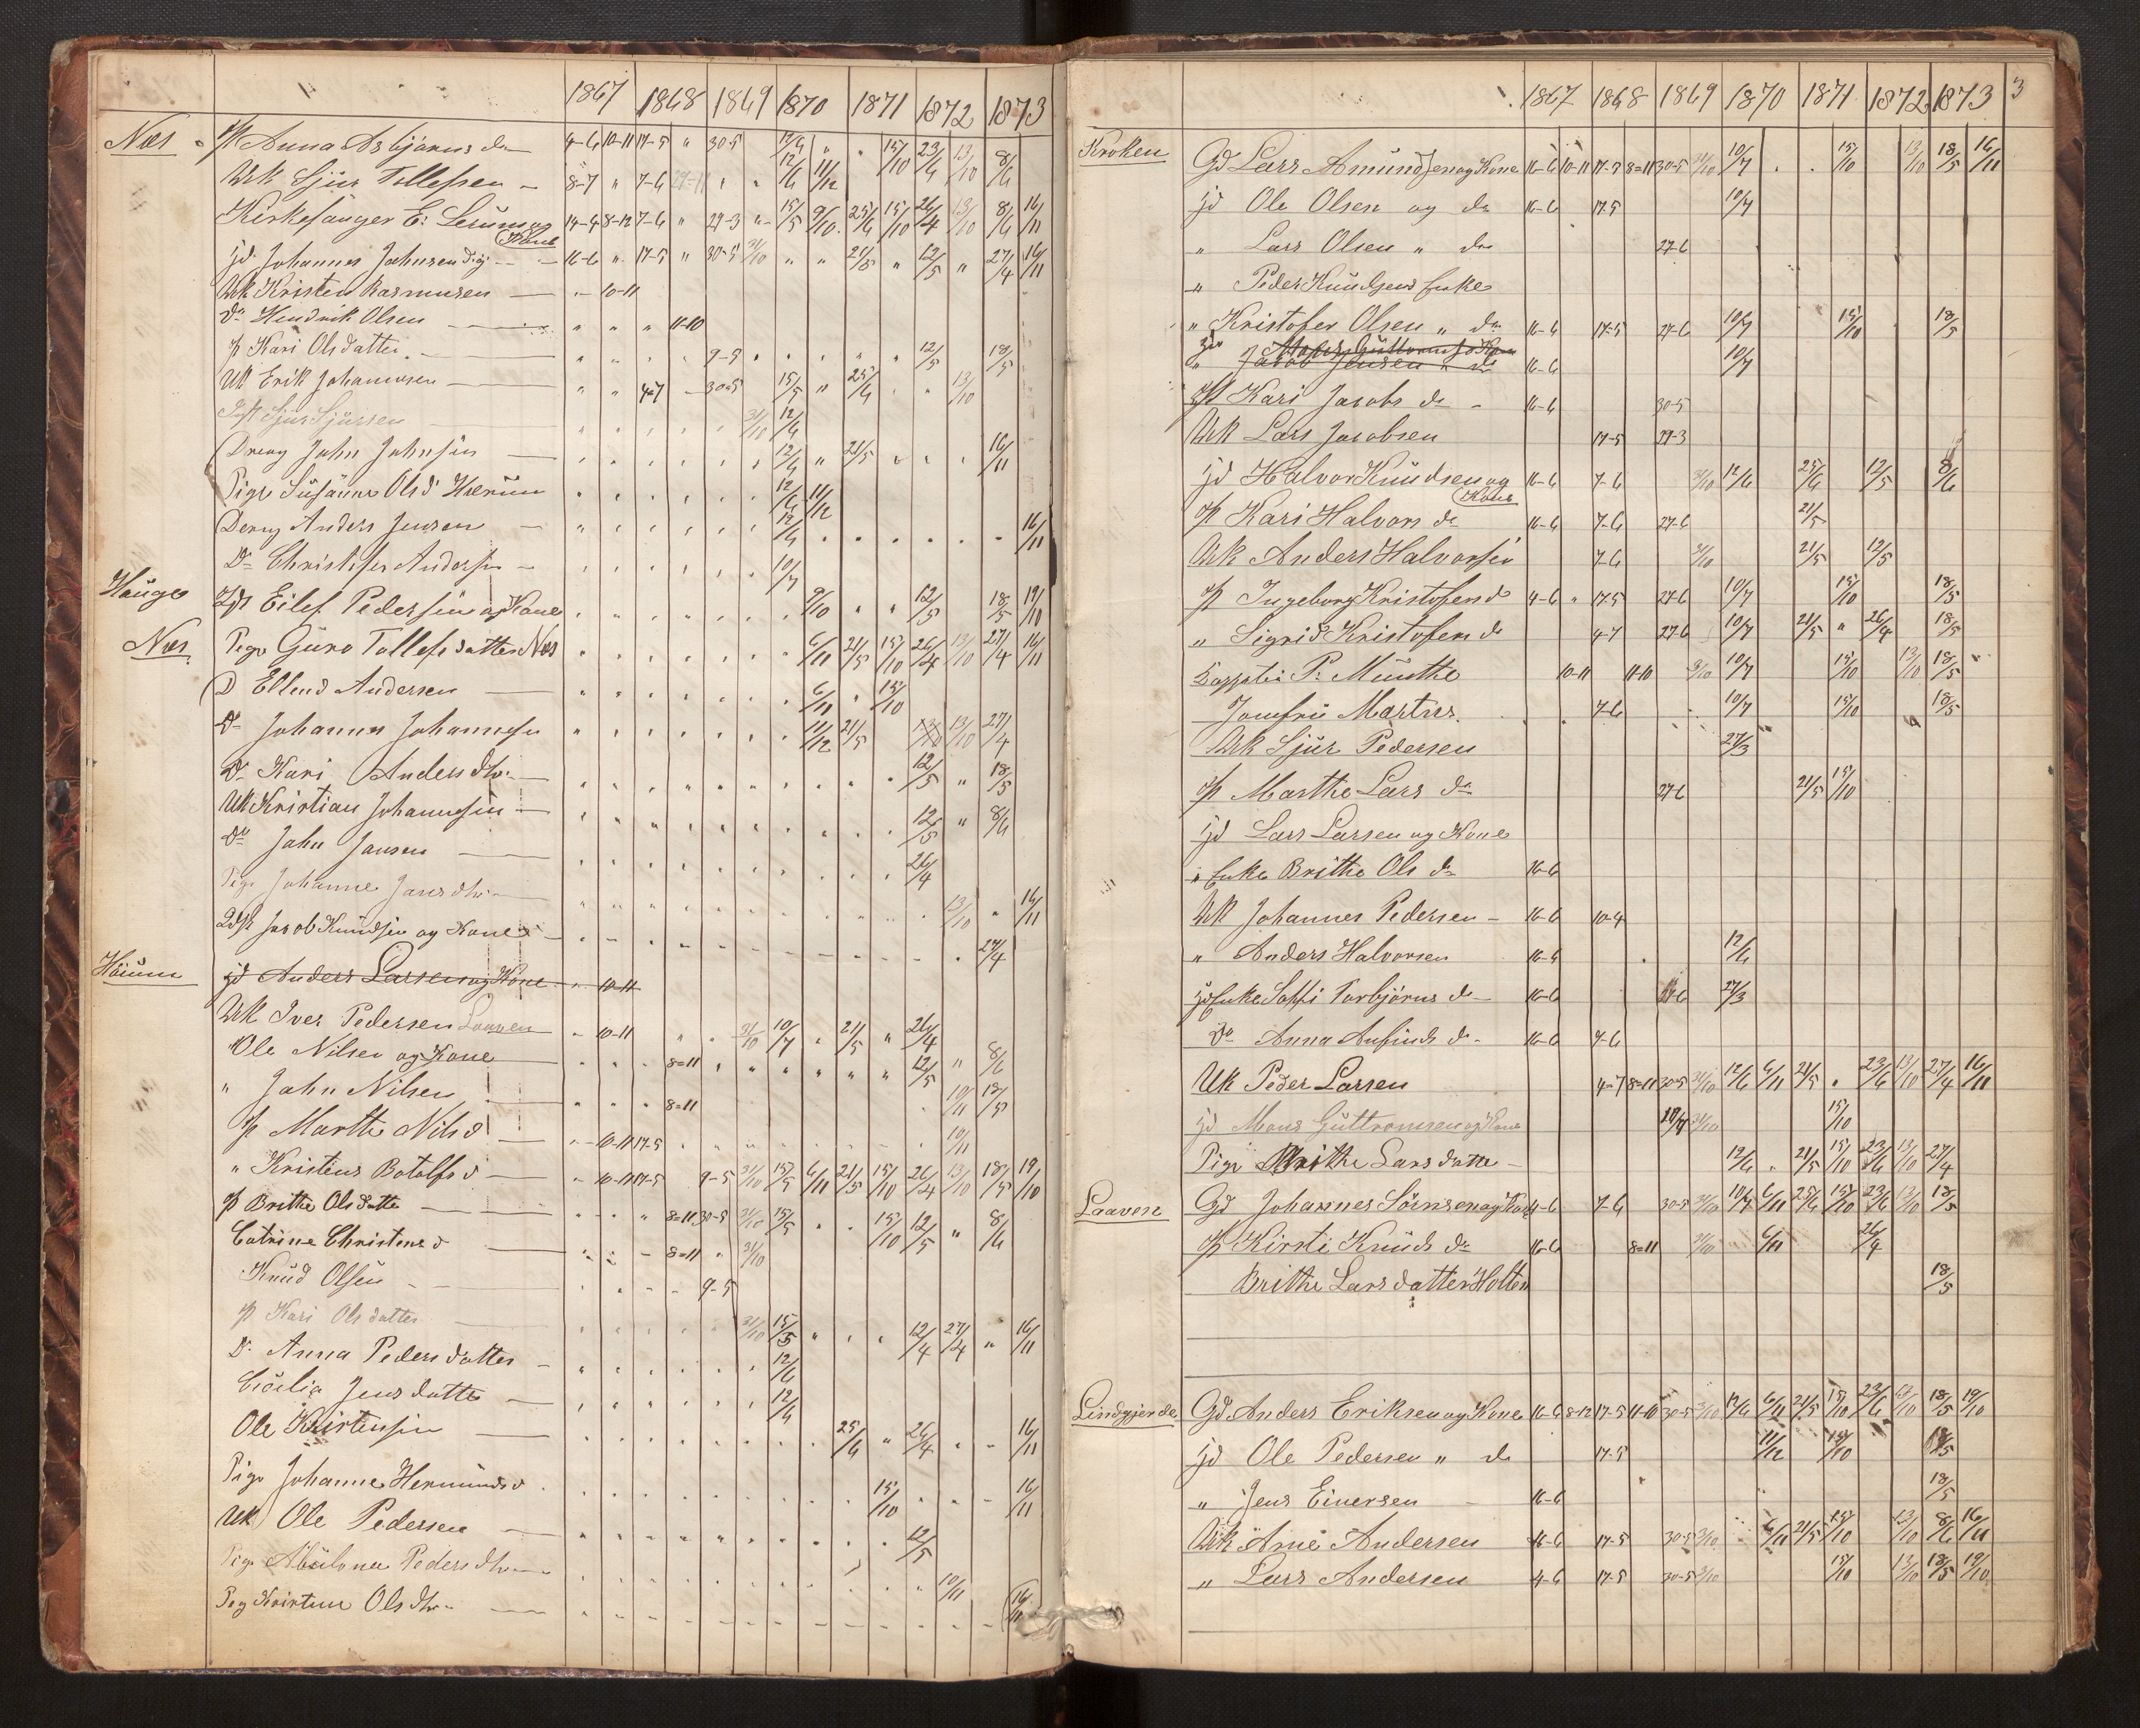 1867 1868 1869 1870 1871 1872 1873
Næs P Anna Asbjørns da 4-6 10-11 17-5 " 30-5 12/6 " 15/10 23/6 13/10 8/6
Uk Sjur Tollefsen 8-7 " 7-6 29-11 12/6 11/12
Kirkesanger E: Lerum og Kone 14-4 8-12 7-6 " 29-3 " 15/5 9/10 25/6 15/10 26/4 13/10 8/6 16/11
jd Johannes Johnsen 16-6 " 17-5 " 30-5 31/10 " " 21/5 " 12/5 " 27/4 16/11
Uk Kristen Rasmusen 10-11
Do Hendrik Olsen " " " 11-10
P Kari Olsdatter 9-5 12/5 18/5
Uk Erik Johannesen 4-7 30-5 15/5 " 25/6 13/10
Sjur Sjursen 31/10 12/6
Dreng John Johnsen 12/6 " 21/5 16/11
Pige Susanne Olsd Hærum 12/6 11/12
Dreng Anders Jensen 12/6 16/11
Do Christofer Andersen 10/7
Hauge Eilef Pedersen og Kone 9/10 12/5 18/5 19/10
Næs Pige Guro Tollefsdatter Næs 6/11 21/5 15/10 26/4 13/10 27/4 16/11
D Ellend Andersen 6/11 15/10
Do Johannes Johannesen 11/12 21/5 13/10 27/4
Do Kari Andersdtr 12/5 " 18/5
Uk Kristian Johannesen 12/5 " 8/6
Do John Jansen 26/4
Pige Johanne Jansdtr 13/10 16/11
Jacob Knudsen og Kone 27/4
Høium jd Anders Larsen og Kone 10-11
Uk Iver Pedersen Laaven 10-11 31/10 10/7 21/5 " 26/4
" Ole Nilsen og Kone 8-11 12/5 " 8/6
" John Nilsen 8-11 10/11 18/5
P Marthe Nilsd 10-11 17-5 10/11
" Kristens Botolfsd 10-11 17-5 9-5 31/10 15/5 6/11 21/5 15/10 26/4 13/10 18/5 19/10
P Brithe Olsdatte 8-11 30-5 31/10 15/5 15/10 12/5 " 8/6
Catrine Christensd 8-11 " 31/10
Knud Olsen 9-5
P Kari Olsdatter 31/10 15/5 12/4 27/4 " 16/11
Do Anna Pedersdatter 12/6
Cecilia Jensdatte 12/6
Ole Kristensen 25/6 " 26/4 16/11
Pige Johanne Hermundsd 15/10 16/11
Uk Ole Pedersen 12/5
Pige Abelone Pedersdtr 10/11
Pig Kristine Olsdtr 16/11
1867 1868 1869 1870 1871 1872 1873 3
Kroken Gd Lars Amundsen og Kone 16-6 10-11 17-5 8-11 30-5 31/10 10/7 15/10 13/10 18/5 16/11
jd Ole Olsen og do 16-6 17-5 10/7
" Lars Olsen " do 27-6
" Peder Knudsens Enke
" Kristofer Olsen " do 16-6 17-5 27-6 10/7 15/10 18/5
" Jacob Jensen " do 16-6 10/7
P Kari Jacobs da 16-6 30-5
Uk Lars Jacobsen 17-5 29-3
jd Halvor Knudsen og Kone 16-6 7-6 31/10 12/6 25/6 12/5 8/6
P Kari Halvors da 16-6 7-6 27-6 21/5
Uk Anders Halvorsen 7-6 31/10 21/5 12/5
P Ingeborg Kristofersd 4-6 " 17-5 27-6 10/7 15/10 18/5
" Sigrid Kristofers d 4-7 27-6 10/7 21/5 " 26/4 18/5
P. Munthe 10-11 11-10 31/10 10/7 15/10 13/10 18/5
Jomfru Martres 7-6 10/7 15/10 18/5
Uk Sjur Pedersen 27/3
P Marthe Lars da 27-6 21/5 15/10
jd Lars Larsen og Kone
" Enke Brithe Ols da 16-6
Uk Johannes Pedersen 16-6 10-4
" Anders Halvorsen 16-6 12/6
jd Enke Torbjørns d 16-6 27-6 27/3
Do Anna Anfinds d 16-6 7-6
Uk Peder Larsen 4-7 8-11 30-5 31/10 12/6 6/11 21/5 " 23/6 13/10 27/4 16/11
jd Mons Guttromsen og Kone 10/7 31/10 15/10
Pige Brithe Larsdatte 12/6 " 21/5 15/10 23/6 13/10 27/4
Laaven Gd Johannes Sørnsen og Kone 4-6 7-6 30-5 31/10 10/7 6/11 25/6 15/10 23/6 13/10 18/5
P Kirsti Knuds da 16-6 8-11 31/10 6/11 26/4
Brithe Larsdatter Holten 18/5
Lindgjerde Gd Anders Eriksen og Kone 16-6 8-12 17-5 11-10 30-5 31/10 12/6 6/11 21/5 15/10 23/6 13/10 18/5 19/10
jd Ole Pedersen " do 17-5 11/12 15/10 18/5
" Jens Einersen 16-6 18/5
Uk Arne Andersen 16-6 17-5 30-5 31/10 6/11 21/5 15/10 13/10 8/6 16/11
" Lars Andersen 4-6 17-5 30-5 31/10 15/10 13/10 18/5 19/10